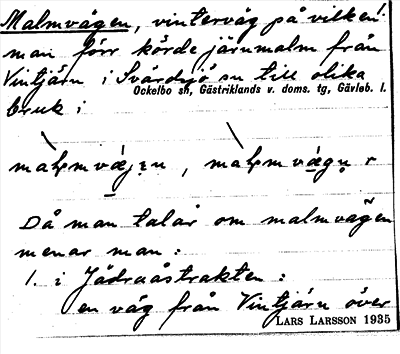 Malmvägen, vinterväg på vilken
man förr körde järnmalm från
Vintjärn i Svärdsjö sn till olika
Ockelbo sn, Gästriklands v. doms. tg, Gävleb. l.
bruk i
Då man talar om malmvägen
menar man:
1. i Jädraåstrakten:
en väg från Vintjärn över
LARS LARSSON 1935